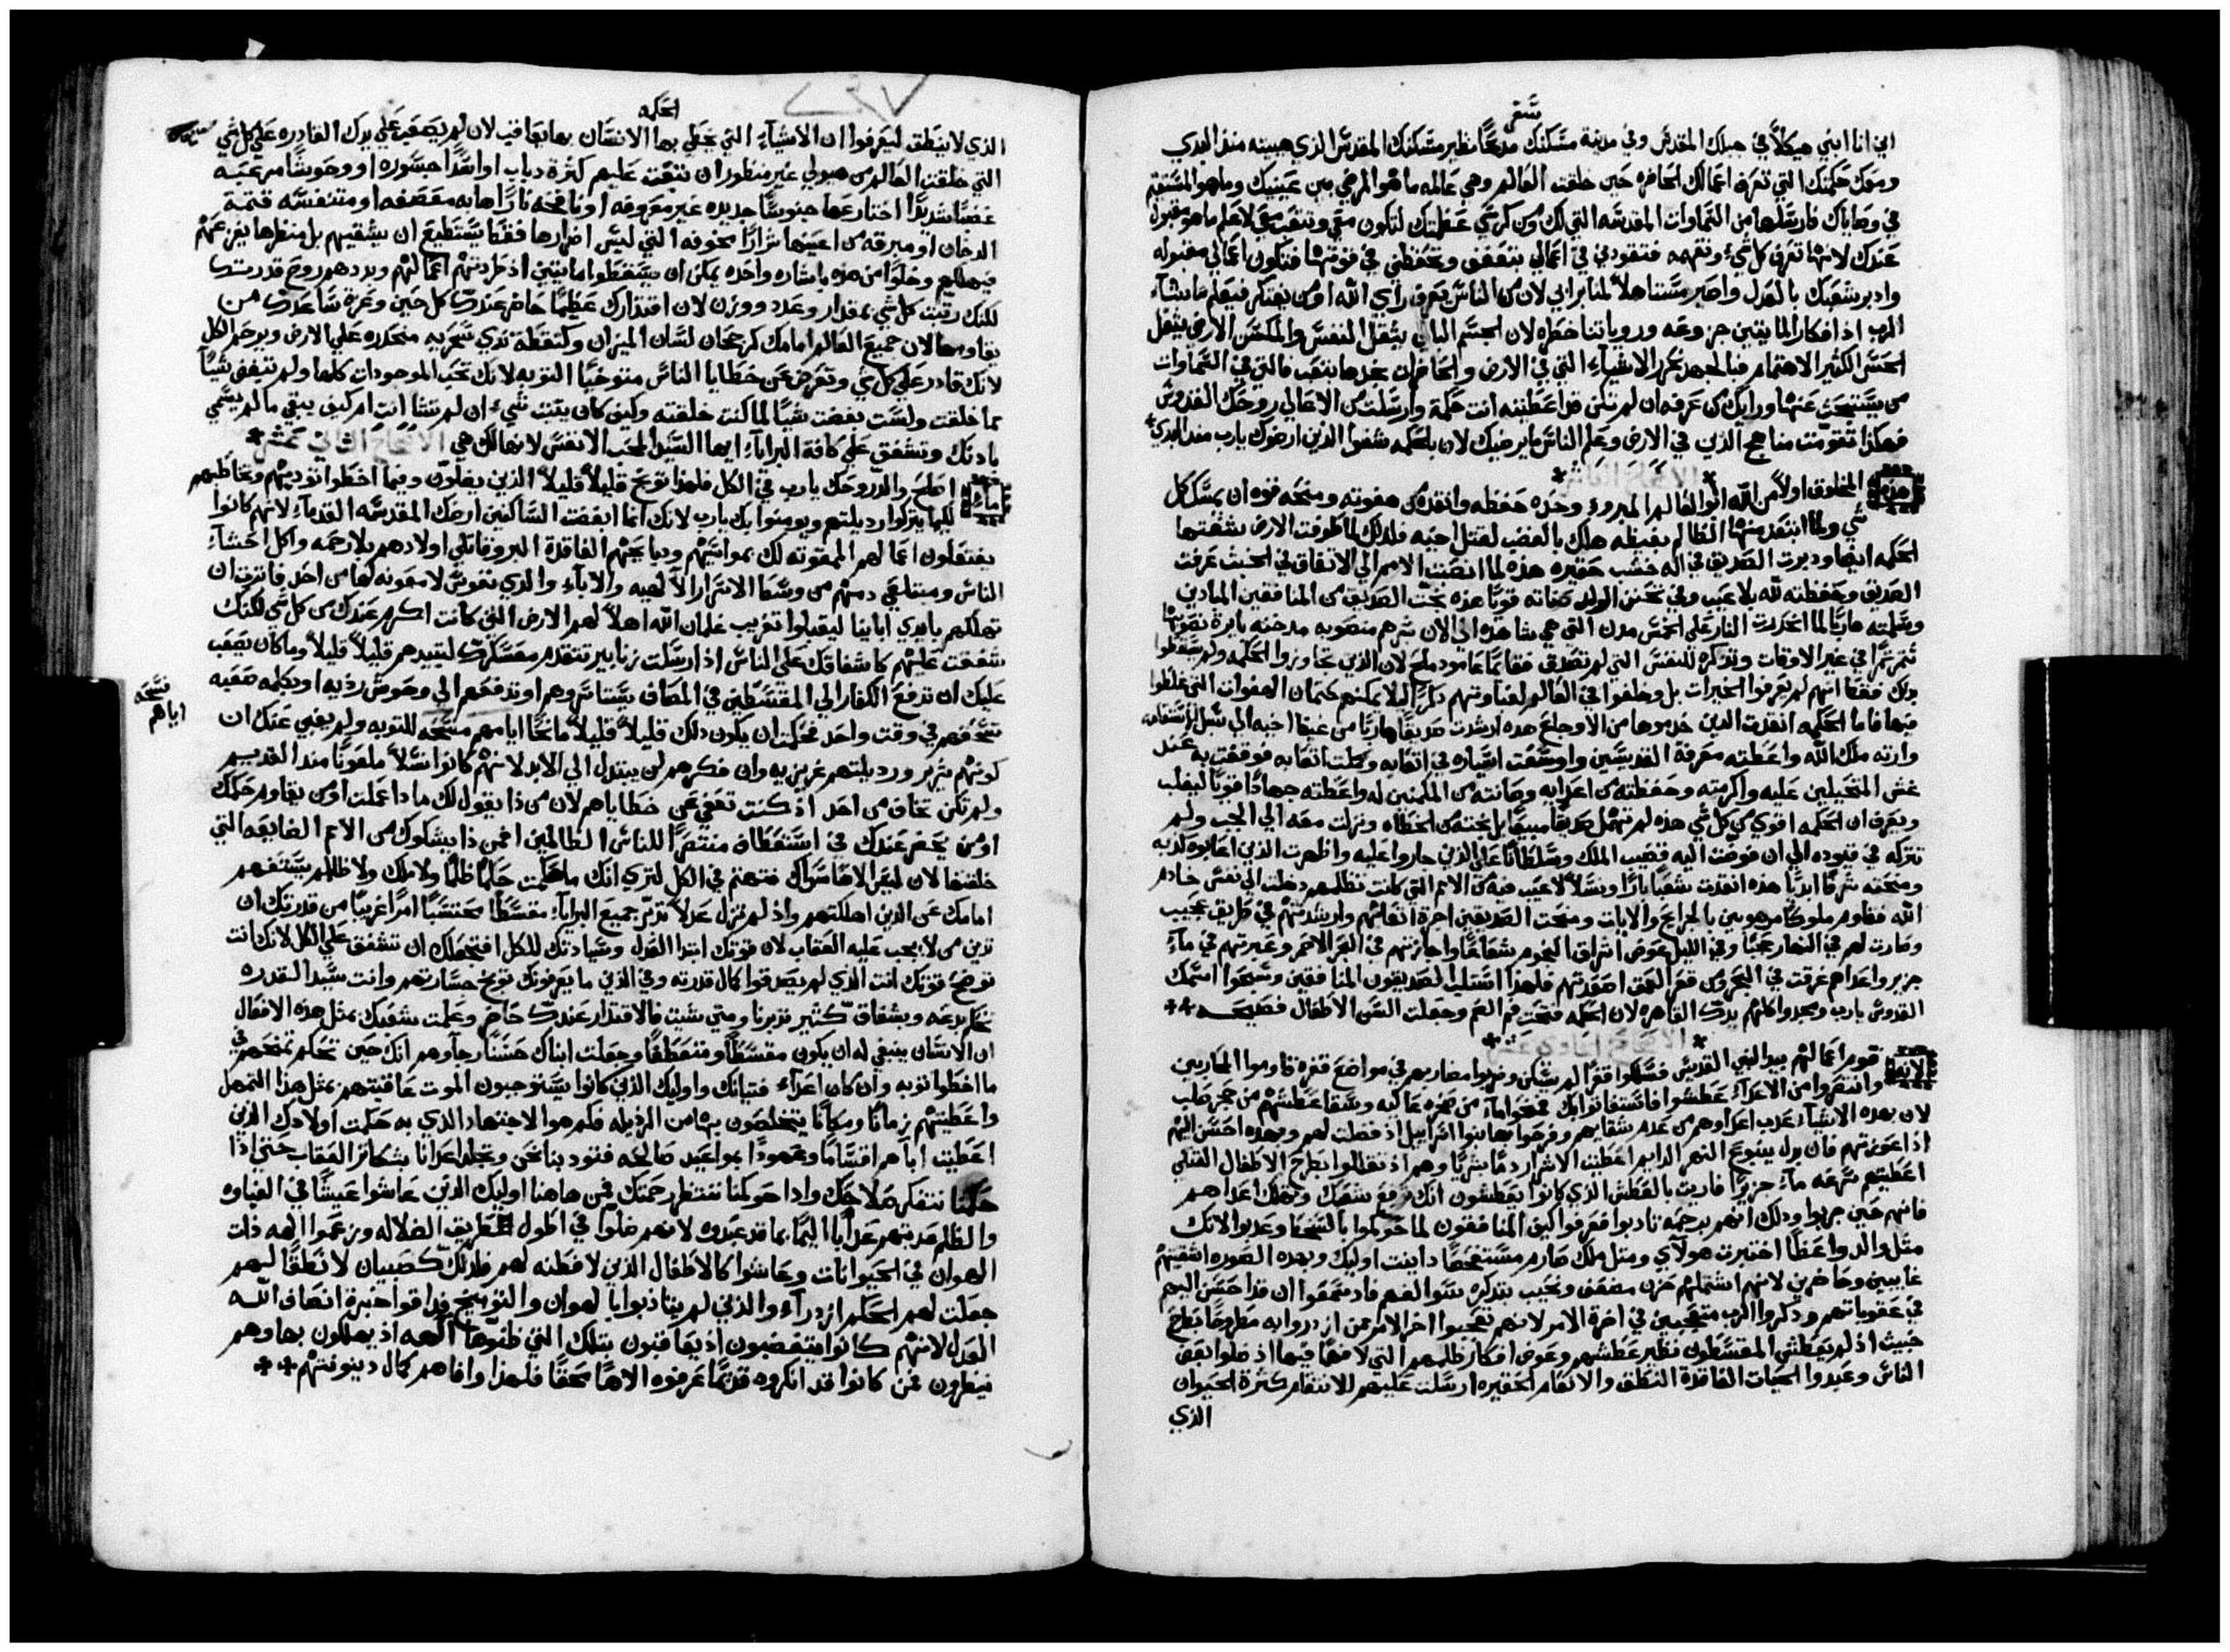 سفر
اني انا ابني هيكلاً في جبلك المقدس وفي مدينة مسكنك مذبحًا نظير مسكنك المقدس الذي هييته منذ البدي
ومعك حكمتك التي تعرف اعمالك الحاضره حين خلقت العالم وهي عالمه ما هو المرضي بين عينيك وما هو المستقيم
في وصاياك فارسلها من السماوات المقدسه التي لك ومن كرسي عظمتك لتكون معي وتتعب معي لاعلم ما هو مقبول
عندك لانها تعرف كل شيء وتفهمه فتقودني في اعمالي بتعفف وتحفظني في قوتها فتكون اعمالي مقبوله
وادبر شعبك بالعدل واصير مستاهلاً لمنابر ابي لان من الناس يعرف راي الله او من يفتكر فيعلم ما يشآء
الرب اذ افكار المايتين جزوعه وروياتنا خطره لان الجسم البالي يثقل النفس والمسكن الارضي يثقل
الحس الكثير الاهتمام فبالجهد نحزر الاشياء التي في الارض والحاضرات نجدها بتعب فالتي في السماوات
من يستبحث عنها ورايك من عرفه ان لم تكن قد اعطيته انت حكمة وارسلت من الاعالي روحك القدوس
فهكذا تقومت مناهج الذين في الارض وعلم الناس ما يرضيك لان بالحكمه شفوا الذين ارضوك يارب منذ البدي
هذه المخلوق اولاً من الله ابو العالم المبروء وحده حفظه وانقذه من هفوته ومنحه قوه ان يمسك كل
شي ولما ابتعد منها الظالم بغيظه هلك بالغضب لقتل اخيه فلذلك لما طوفت الارض شفتها
الحكمه ايضا ودبرت الصديق في اله خشب حقيره هذه لما انصبت الامم الي الاتفاق في الخبث عرفت
الصديق وحفظته لله بلا عيب وفي تحنن الولد صانته قويًا هذه نجت الصديق من المنافقين المبادين
بذلك فقط انهم لم يعرفوا الخيرات بل وخلفوا في العالم لغباوتهم ذكرًا ليلا يمكنهم كتمان الهفوات التي غلطوا
فيها فاما الحكمه انقذت الذين خدموها من الاوجاع هذه ارشدت صديقًا هاربًا من غيظ اخيه الي سبل
وارته ملك الله واعطته معرفة القديسين واوسعت اتعابه وكملت اتعابه فوقفت به عند
غش المتخيلين عليه واكرمته وحفظته من اعدايه وصانته من المكمنين له واعطته جهادًا قويًا ليغلب
ويعرف ان الحكمه اقوي من كل شي هذه لم تهمل صديقا مبيعا بل نجته من الخطاه ونزلت معه الي الجب ولم
تتركه في قيوده الي ان فوضت اليه قضيب الملك وسلطانًا علي الذين جاروا عليه واظهرت الذين اعابوه كذبه
ومنحته شرفًا ابديًا هذه انقذت شعبًا بارًا ونسلاً لاعيب فيه من الامم التي كانت تظلمهم دخلت الي نفس خادم
الله فقاوم ملوكًا مرهوبين بالجرايح والايات ومنحت الصديقين اجرة اتعابهم وارشدتهم في طريق عجيب
وصارت لهم في النهار وفي الليل عوض اشراق النجوم شعاعًا واجازتهم في البحر الاحمر وعبرتهم في مآءٍ
جزير واعداهم غرقت في البحر ومن قعر العمق اصعدتهم فلهذا استلبا الصديقون المنافقين وسبحوا اسمك
القدوس يارب ومجدوا كلهم يدك القاهره لان الحكمه فتحت فم البكم وجعلت السن الاطفال فصيحه
الانها قوم اعمالهم بيد النبي القديس فسلكوا قفرًا لم يسكن وضربوا مضاربهم في مواضع قفره قاوموا المحاربين
وانتقموا من الاعداء عطشوا فاستغاثوا بك فمنحوا مآء من صخره عاليه وشفا عطشهم من حجر صلب
لان بهذه الاشيآء عذب اعداوهم
اذا عوزتهم فان بدل ينبوع النهر الدايم اعطيت الاشرار دمًا بشريًا وهم اذ تقللوا بطرح الاطفال القتلي
اعطيتهم سرعه مآء جزيرًا فاريت بالعطش الذي كانوا يعطشون انك ترفع شعبك وتهلك اعداهم
فانهم حين جربوا وذلك انهم برحمه تادبوا فعرفوا كيف المنافقون لما حوكموا بالسخط وعذبوا لانك
مثل والد واعظًا اختبرت هولاي ومثل ملك صارم مستفحصًا داينت اوليك وبهذه الصوره اشقيتهم
غايبين وحاضرين لانهم اشتملهم حزن مضعف ونحيب بتذكره
في عقوباتهم وذكروا الرب متعجبين في اخرة الامر لانهم تعجبوا اخر الامر ممن ازدروا به مطروحًا بطرح
خبيث اذ لم يعطش المقسطون نظير عطشهم وعوض افكار ظلمهم التي لا فهم فيها اذ ضلوا بعض
الناس وعبدوا الحيات الفاقدة النطق والانعام الحقيره ارسلت عليهم للانتقام كثرة الحيوان
الذي
الحكمه
الذي لا ينطق ليعرفوا ان الاشيآء التي يخطي بها الانسان بها يعاقب لان لم يصعب علي يدك القادره علي كل شي
التي خلقت العالم من هيولي غير منظور ان تبعث عليهم كثرة دباب او اسدًا جسوره او وحوشًا
غضبًا اختارعها جنوسًا جديده غير معروفه او نافخه نارًا
الدخان او مبرقه من اعينها شرارًا مخوفه التي ليس اضرارها فقط يستطيع ان يشقيهم بل منظرها يفزعهم
فيهلكهم وخلوًا من هذه باشاره واحده يمكن ان يسقطوا مايتين اذ طردتهم اعمالهم ويددهم روح قدرتك
لكنك رتبت كل شي بمقدار وعدد ووزن لان اقتدارك عظيمًا حاضر عندك كل حين وعزة ساعدك من
يقاومها لان جميع العالم امامك كرجحان لسان الميزان وكنقطة ندي سحريه منحدره علي الارض وترحم الكل
لانك قادر علي كل شي وتعرض عن خطايا الناس متوخيًا التوبه لانك تحب الموجودات كلها ولم تبغض شيًا
مما خلقت ولست بغضت شيًا لما كنت خلقته وكيف كان يثبت شيء ان لم تشا انت ام كيف يبقي ما لم يسمي
باذنك وتشفق علي كافة البرايآء ايها السيد المحب الانفس لانها لك هي الاصحاح الثاني عشر
اصلح والذ روحك يارب في الكل فلهذا توبخ قليلاً قليلاً الذين يضلون وفيما اخطوا تودبهم وتخاطبهم
لكيما يتركوا رديلتهم ويومنوا بك يارب لانك انما ابغضت الساكنين ارضك المقدسه القدمآء لانهم كانوا
يفتعلون اعمالهم الممقوته لك وذبايحهم الفاقدة البر وقاتلي اولادهم بلا رحمه واكل احشآء
الناس ومبتلعي دمهم من وسط الاسرار الالهيه والابآء والذي نفوس لا معونه لها من احد فاثرت ان
تهلكهم بايدي اباينا ليقبلوا تغريب غلمان الله اهلاً لهم الارض التي كانت اكرم عندك من كل شي لكنك
شفقت عليهم كاشفاقك علي الناس اذ ارسلت زنابير تتقدم معسكرك لتبيدهم قليلاً قليلاً وما كان يصعب
عليك ان تدفع الكفار الي المقسطين في المصاف او تدفعهم الي وحوش رديه او بكلمه صعبه
تسحقهم في وقت واحد فحكمت ان يكون ذلك قليلاً قليلاً مانحًا اياهم فسحه للتوبه ولم يغبي عنك ان
كونهم شرير ورديلتهم غريزيه وان فكرهم لن يبتدل الي الابد لانهم كانوا نسلاً ملعونًا منذ القديم
ولم تكن تخاف من احد اذ كنت تعفي عن خطاياهم لان من ذا يقول لك ماذا عملت او من يقاوم حكمك
او من يحضر عندك في استعطاف منتصرًا للناس الظالمين او من ذا يشكوك من الامم الضايعه التي
خلقتها لان ليس الاهًا سواك مهتم في الكل لتري انك ما حكمت حكمًا ظلمًا ولا ملك ولا ظالم يستفهم
امامك عن الذين اهلكتهم واذ لم تزل عدلاً تدبر جميع البرايآء مقسطًا محتسبًا امرًا غريبًا من قدرتك ان
تدين من لا يجب عليه العقاب لان قوتك ابتدا العدل وسيادتك للكل افتجعلك ان تشفق علي الكل لانك انت
توضح قوتك انت الذي لم يصدقوا كمال قدرته وفي الذين ما يعرفونك توبخ جسارتهم وانت سيد القدره
تحكم بدعه وبشفاق كثير تدبرنا ومتي شيت فالاقتدار عندك حاضر وعلمت شعبك بمثل هذه الافعال
ان الانسان ينبغي له ان يكون مقسطًا ومتعطفًا وجعلت ابناك حسنًا رجآوهم انك حين تحكم تمنحهم في
ما اخطوا توبه وان كان اعدآء فتيانك واوليك الذين كانوا يستوجبون الموت عاقبتهم بمثل هذا التمهل
واعطيتهم زمانًا ومكانًا يتخلصون بها من الرذيله فكم هو الاجتهاد الذي به حكمت اولادك الذين
اعطيت اباهم اقسامًا وعهودًا بمواعيد صالحه فتودبنا نحن وتجلد اعدانا بشكاتر العقاب حتي اذا
حكمنا نتفكر صلاحك واذا حوكمنا ننتظر رحمتك فمن هاهنا اوليك الذين عاشوا عيشًا في الغباوه
والظلم عذبتهم عذابًا اليمًا بما قد عبدوه لانهم ضلوا في اطول طريق الضلاله وزعموا الهه ذات
الهوان في الحيوانات وعاشوا كالاطفال الذين لا فطنه لهم فلذلك كصبيان لا نطقًا لهم
جعلت لهم الحكم ازدرآء والذين لم يتاذبوا بالهوان والتوبيخ فذاقوا خبرة انصاف الله
العدل لانهم كانوا يتغضبون اذ يعاقبون بتلك التي ظنوها الهه اذ يهلكون بها وهم
ينظرون من كانوا قد انكروه قديمًا عرفوه الاهًا محقًا فلهذا وافاهم كمال دينونتهم
فسحه
اياهم